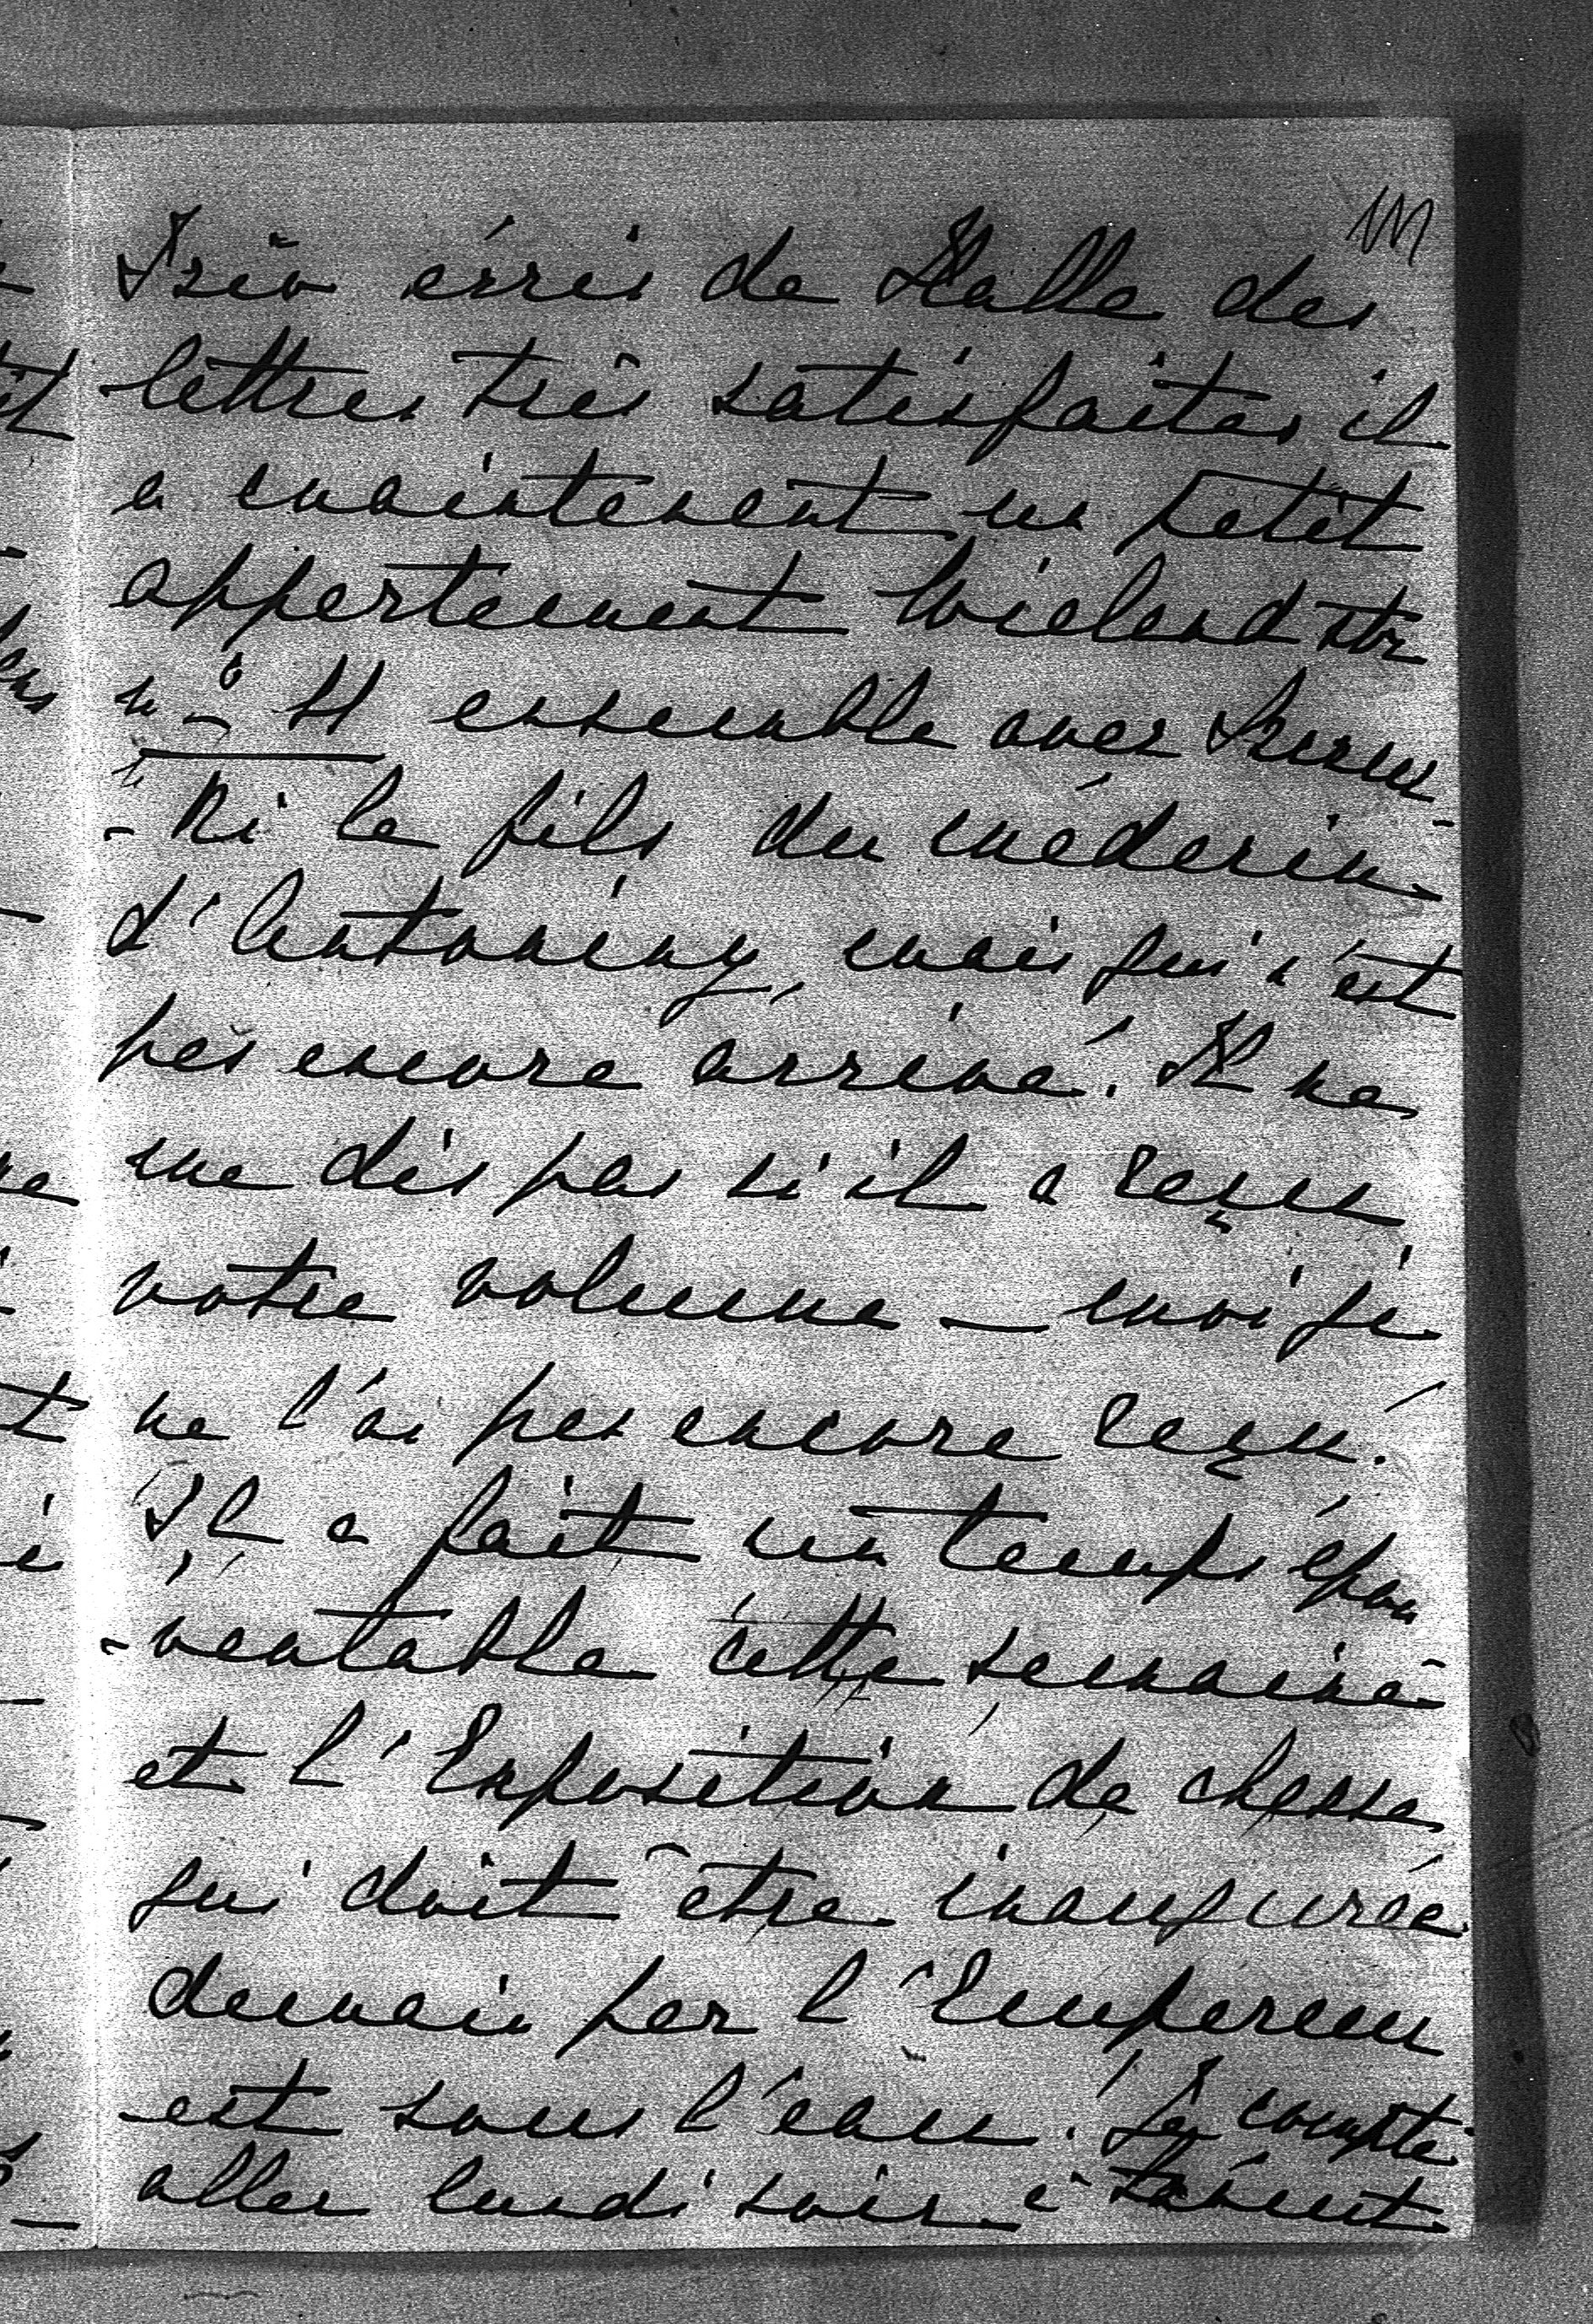 Trèv écris de Halle des
lettres très satisfaites il
a maintenant un petit
appartement Wieland str
n° 11 ensemble avec
-ki le fils du médecin
d'Antoniny, mais qui n'est
pas encore arrivé. Il ne
me dis pas si'il a reçu
votre volume — moi je
ne l'ai pas encore reçu.
Il a fait un temps épou
-ventable cette semaine
et l'Exposition de chasse
qui doit être inaugurée
demain par l'Empereur
est sous l'eau. Je compte
aller lundi soir à